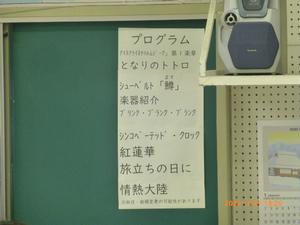 プログラム
アイネクライネナハトムジーク」第１楽章
となりのトトロ
シューベルト「鱒」
ます
楽器紹介
プリンク・プランク・プランク
シンコペーテッド・クロック
紅蓮華
旅立ちの日に
情熱大陸
※曲目・曲順変更の可能性があります